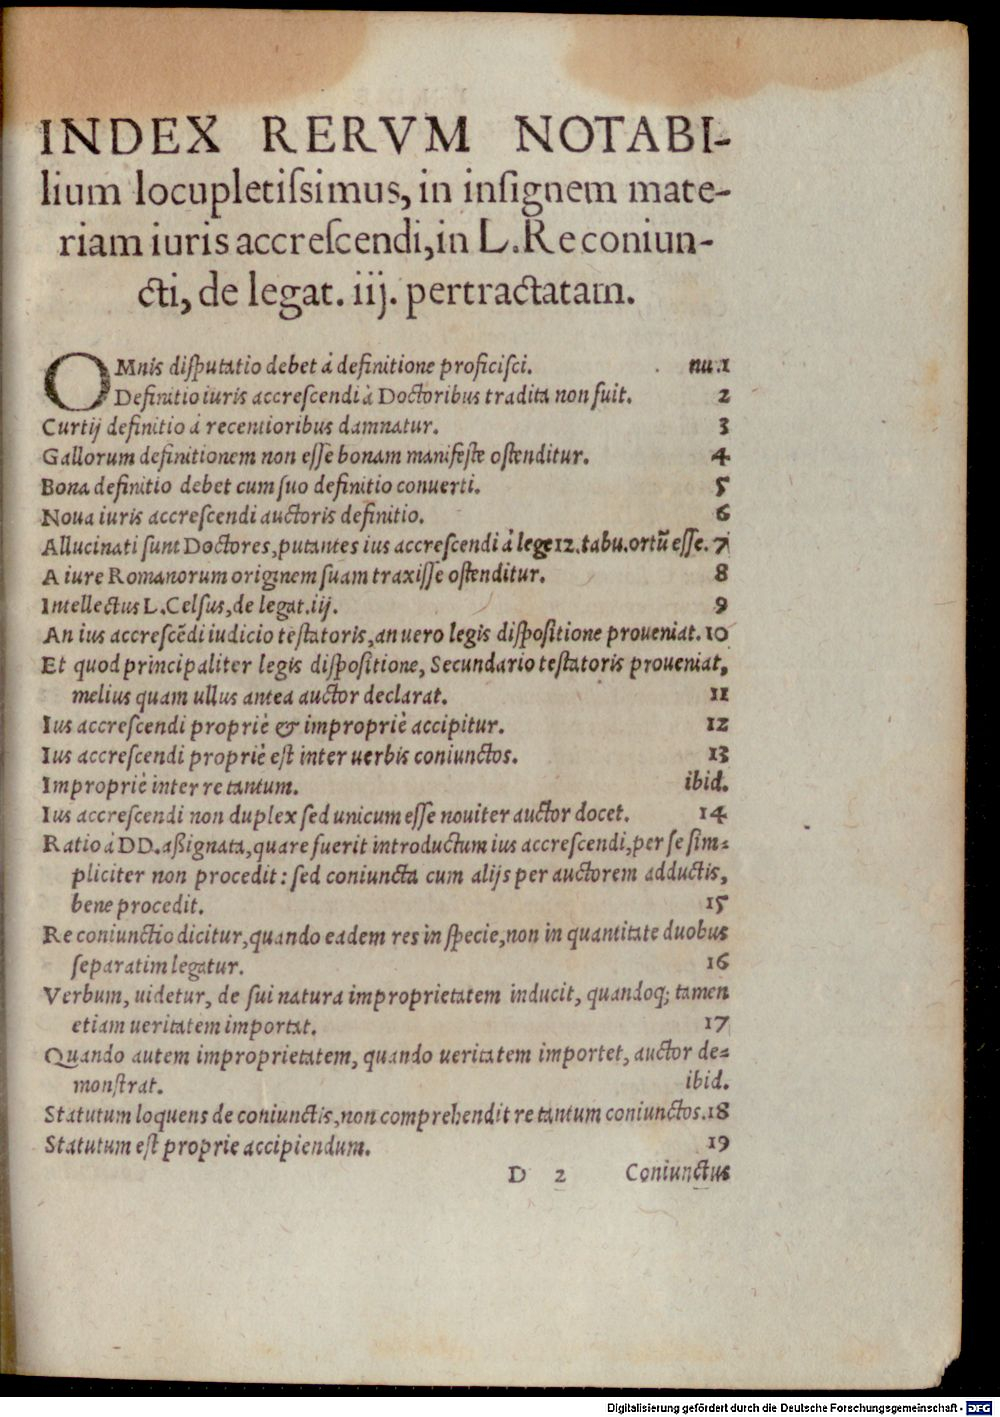 INDEX RERVM NOTABI-
lium locupletiſsimus, in inſignem mate-
riam iuris accreſcendi, in L. Re coniun-
cti, de legat. iij. pertractatam.
OMnis diſputatio debet à definitione proficiſci. nu. 1
Definitio iuris accreſcendi à Doctoribus tradita non fuit. 2
Curtij definitio à recentioribus damnatur. 3
Gallorum definitionem non eſſe bonam manifeſte oſtenditur. 4
Bona definitio debet cum ſuo definitio conuerti. 5
Noua iuris accreſcendi auctoris definitio. 6
Allucinati ſunt Doctores, putantes ius accreſcendi à lege 12. tabu. ortū eſſe. 7
A iure Romanorum originem ſuam traxiſſe oſtenditur. 8
Intellectus L. Celſus, de legat. iij. 9
An ius accreſcēdi iudicio teſtatoris, an uero legis diſpoſitione proueniat. 10
Et quod principaliter legis diſpoſitione, Secundario teſtatoris proueniat,
melius quam ullus antea auctor declarat. 11
Ius accreſcendi propriè & impropriè accipitur. 12
Ius accreſcendi propriè eſt inter uerbis coniunctos. 13
Impropriè inter re tantum. ibid.
Ius accreſcendi non duplex ſed unicum eſſe nouiter auctor docet. 14
Ratio à DD. aßignata, quare fuerit introductum ius accreſcendi, per ſe ſim=
pliciter non procedit: ſed coniuncta cum alijs per auctorem adductis,
bene procedit. 15
Re coniunctio dicitur, quando eadem res in ſpecie, non in quantitate duobus
ſeparatim legatur. 16
Verbum, uidetur, de ſui natura improprietatem inducit, quandoq; tamen
etiam ueritatem importat. 17
Quando autem improprietatem, quando ueritatem importet, auctor de=
monſtrat. ibid.
Statutum loquens de coniunctis, non comprehendit re tantum coniunctos. 18
Statutum eſt proprie accipiendum. 19
D 2 Coniunctus
Digitalisierung gefördert durch die Deutsche Forschungsgemeinschaft - DFG